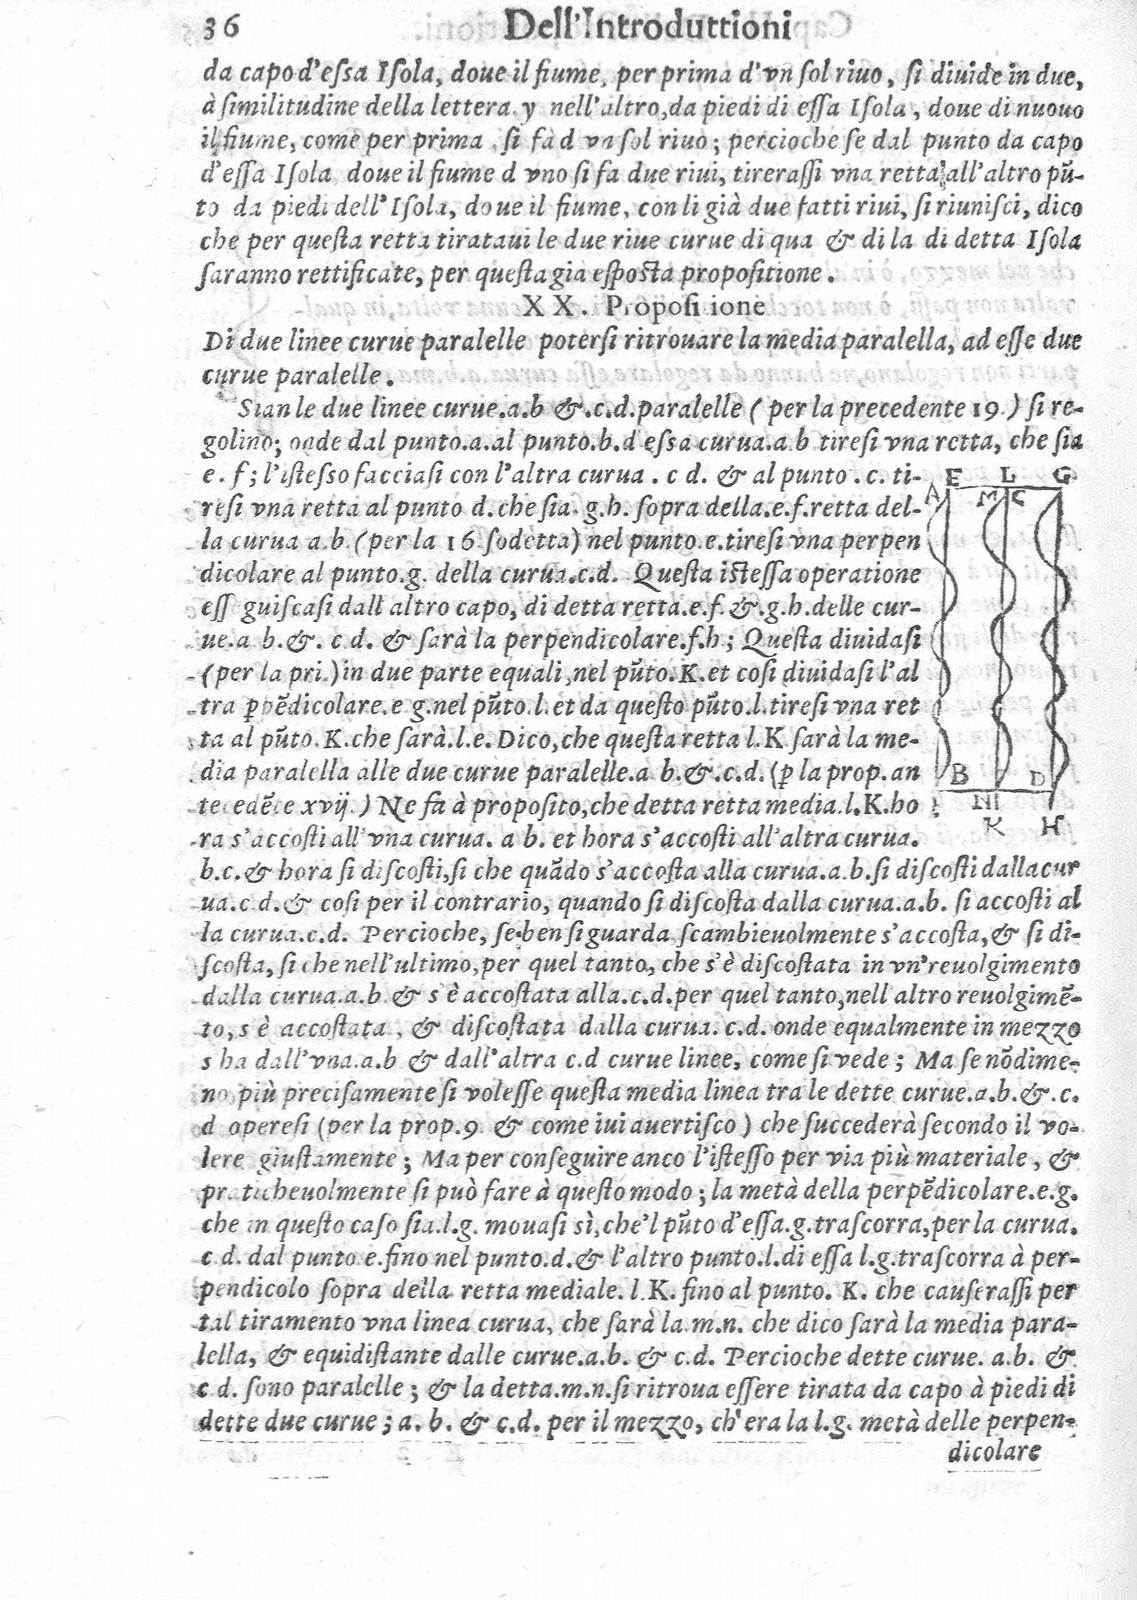 36 Dell'Introduttioni
da capo d'eſſa Iſola, doue il fiume, per prima d'vn ſol riuo, ſi diuide in due,
à ſimilitudine della lettera. y nell'altro, da piedi di eſſa Iſola, doue di nuouo
il fiume, come per prima, ſi fà d vn ſol riuo; percioche ſe dal punto da capo
d'eſſa Iſola doue il fiume d vno ſi fa due riui, tireraſſi vna retta all'altro pũ-
to da piedi dell'Iſola, doue il fiume, con li già due fatti riui, ſi riuniſci, dico
che per queſta retta tirataui le due riue curue di qua & di la di detta Iſola
ſaranno rettificate, per queſta gia eſpoſta propoſitione.
XX. Propoſitione
Di due linee curue paralelle poterſi ritrouare la media paralella, ad eſſe due
curue paralelle.
Sian le due linee curue.a.b &.c.d.paralelle ( per la precedente 19.) ſi re-
golino; onde dal punto.a.al punto.b.d eſſa curua.a.b tireſi vna retta, che ſia
e.f; l'iſteſſo facciaſi con l'altra curua.c d. & al punto.c. ti-
reſi vna retta al punto d.che ſia.g.h. ſopra della.e.f.retta del-
la curua a.b.(per la 16.ſodetta) nel punto.e.tireſi vna perpen
dicolare al punto.g. della curua.c.d. Queſta iſteſſa operatione
eſſ guiſcaſi dall altro capo, di detta retta.e.f.&.g.h.delle cur-
ue.a b.&. c d. & ſarà la perpendicolare.f.h; Queſta diuidaſi
(per la pri.) in due parte equali, nel pũto.K.et coſi diuidaſi l'al
tra ꝑpẽdicolare.e g.nel pũto.l.et da queſto pũto.l.tireſi vna ret
ta al pũto.K.che ſarà.l.e.Dico, che queſta retta l.K ſarà la me-
dia paralella alle due curue paralelle.a b.&.c.d.(ꝑ la prop.an
tecedẽte xvij.) Ne fa à propoſito, che detta retta media.l.K.ho
ra s'accoſti all'vna curua. a b. et hora s'accoſti all'altra curua.
b.c.& hora ſi diſcoſti, ſi che quãdo s'accoſta alla curua.a.b.ſi diſcoſti dalla cur
ua.c d.& coſi per il contrario, quando ſi diſcoſta dalla curua.a.b. ſi accoſti al
la curua.c.d. Percioche, ſe ben ſi guarda ſcambieuolmente s'accoſta, & ſi di-
ſcoſta, ſi che nell'ultimo, per quel tanto, che s'è diſcoſtata in vn'reuolgimento
dalla curua.a.b & s è accoſtata alla.c.d.per quel tanto, nell altro reuolgimẽ-
to, s è accoſtata, & diſcoſtata dalla curua. c.d. onde equalmente in mezzo
s ha dall'vna.a.b & dall'altra c.d curue linee, come ſi vede; Ma ſe nõdime-
no più preciſamente ſi voleſſe queſta media linea tra le dette curue.a.b.&.c.
d opereſi (per la prop.9. & come iui auertiſco) che ſuccederà ſecondo il vo-
lere giuſtamente; Ma per conſeguire anco l'iſteſſo per via più materiale, &
pratticheuolmente ſi può fare à queſto modo; la metà della perpẽdicolare.e.g.
che in queſto caſo ſia.l.g. mouaſi sì, che'l pũto d'eſſa.g.traſcorra, per la curua.
c d. dal punto e.fino nel punto.d.& l'altro punto.l.di eſſa l.g.traſcorra à per-
pendicolo ſopra della retta mediale. l.K. fino al punto. K. che cauſeraſſi per
tal tiramento vna linea curua, che ſarà la.m.n. che dico ſarà la media para-
lella, & equidiſtante dalle curue.a.b. & c.d. Percioche dette curue. a.b. &
c d. ſono paralelle; & la detta.m.n.ſi ritroua eſſere tirata da capo à piedi di
dette due curue; a. b. & c.d. per il mezzo, ch'era la l.g. metà delle perpen-
dicolare
E L G
A M C
B D
N
K H